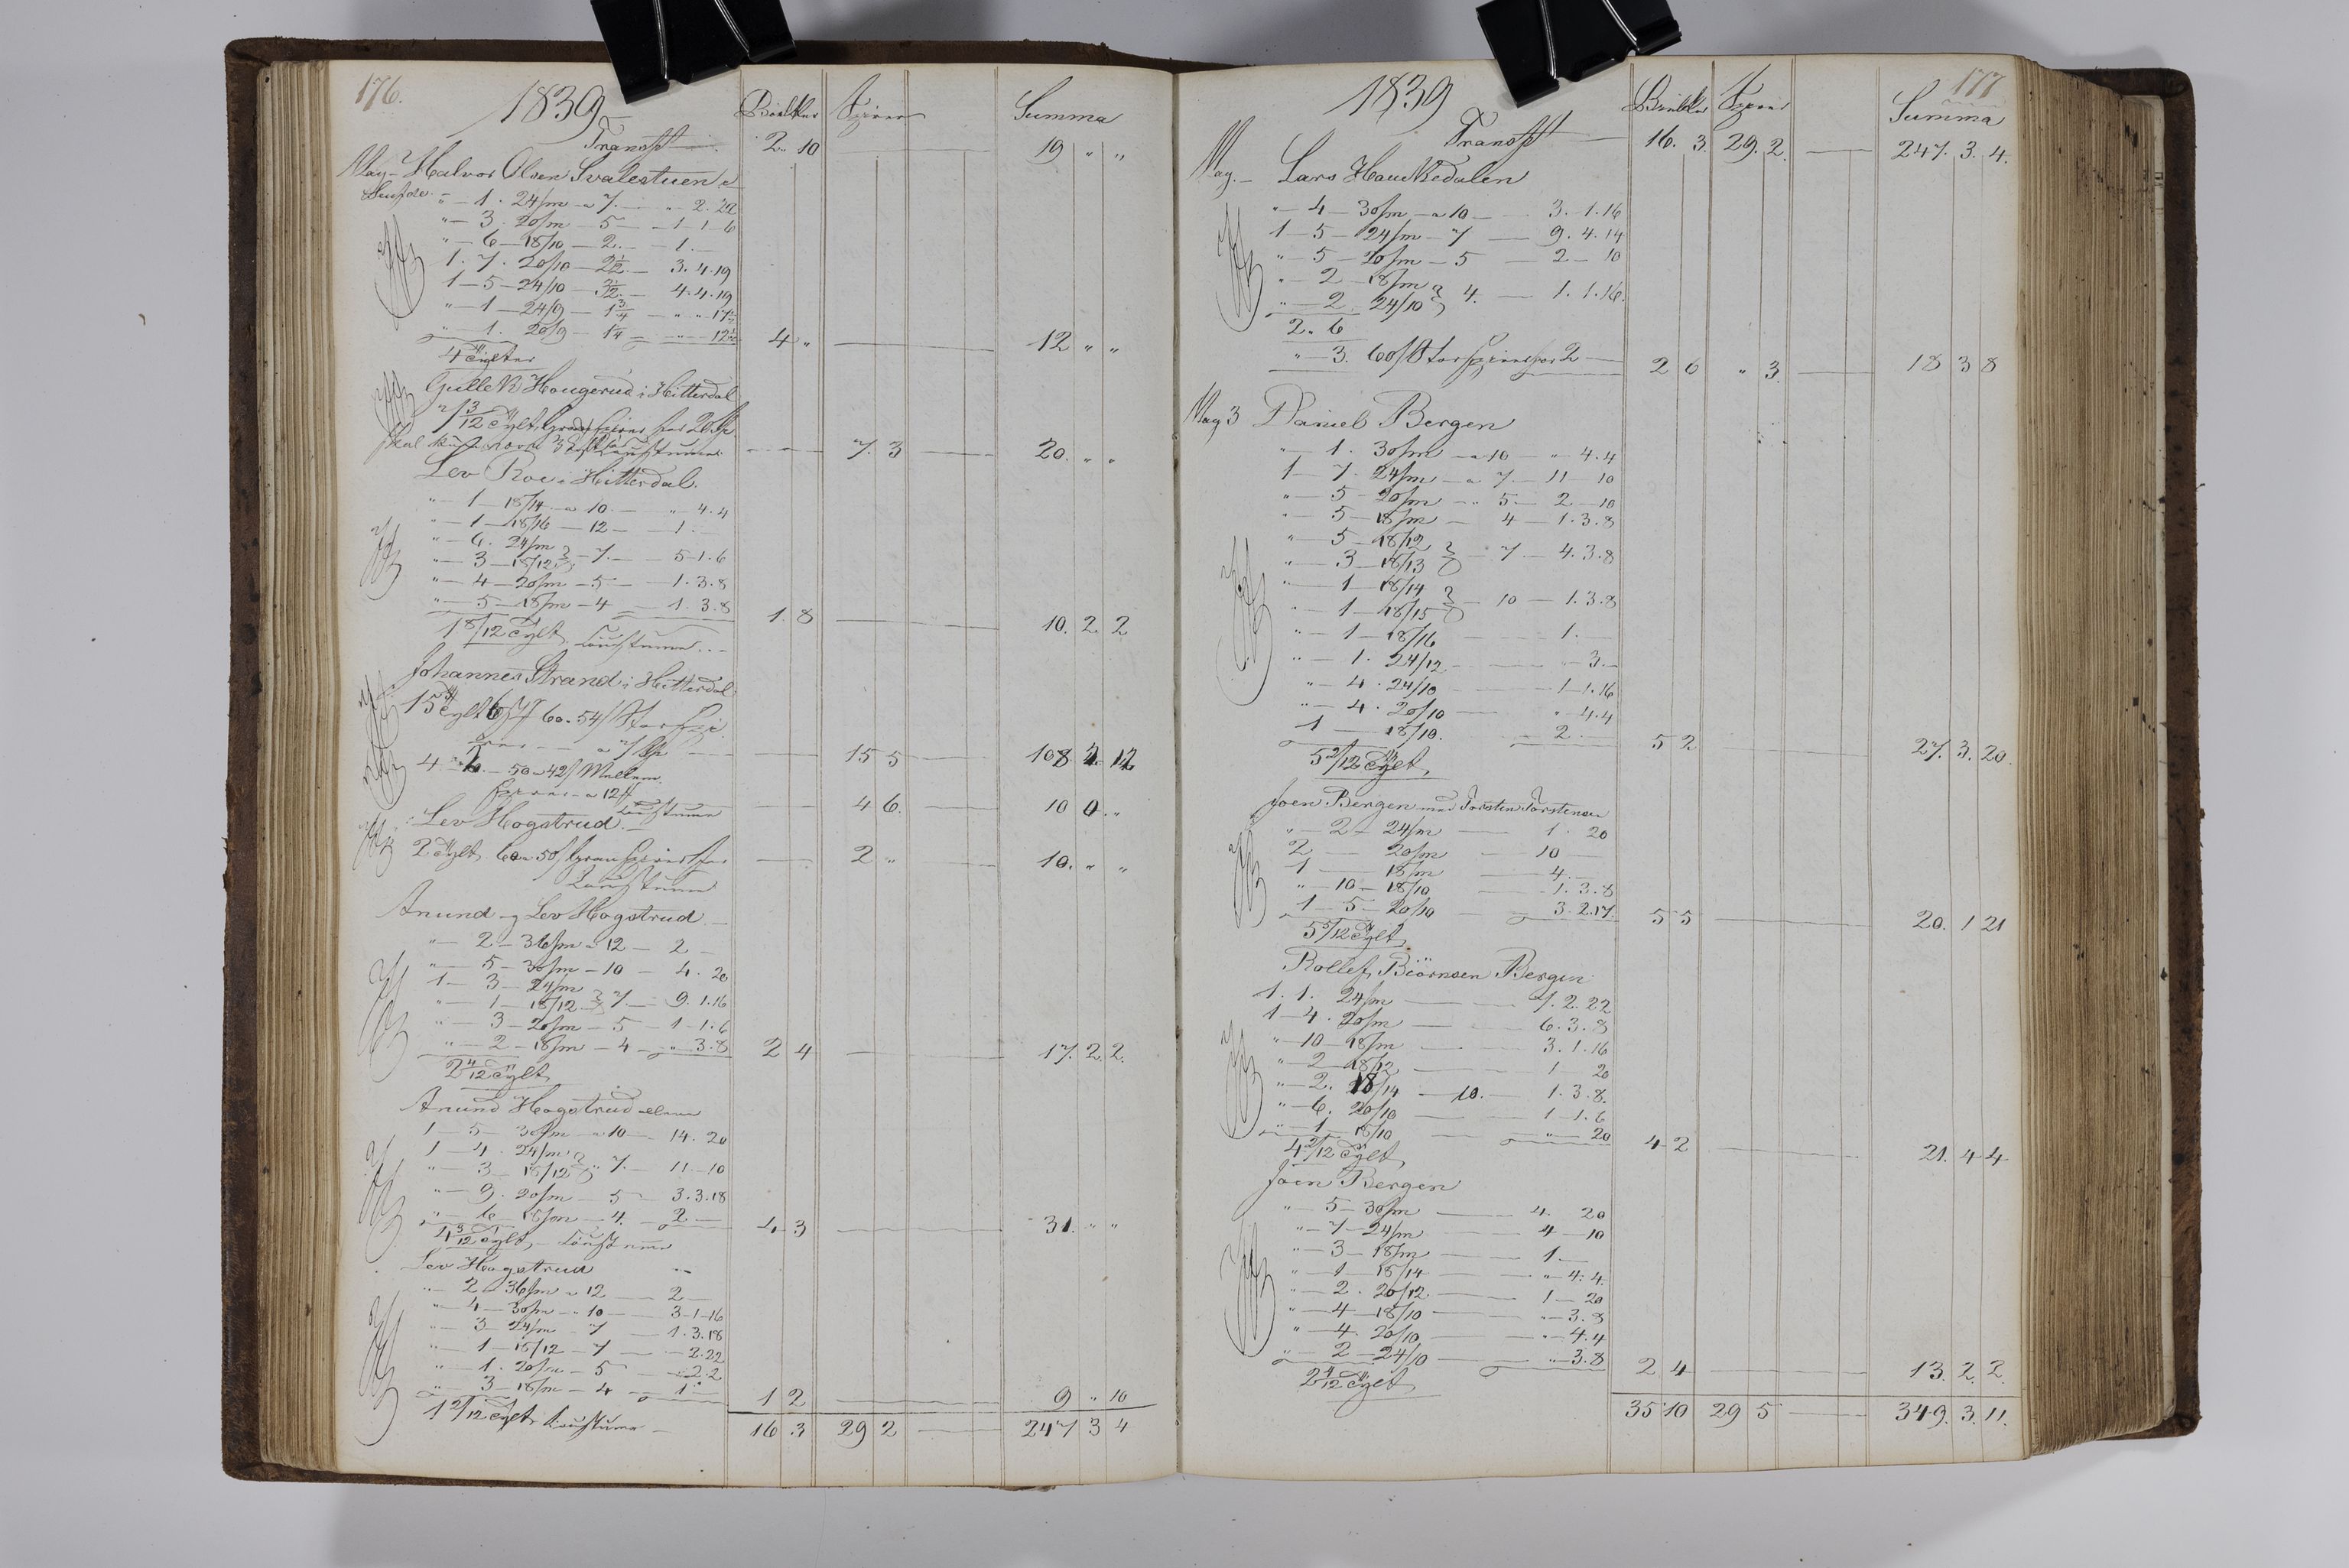 176.
1839
Bielker Spirer Summa
Transpt 2. 10 19 " "
May Halvor Olsen Svalestuen
" 1. 24/m a 7. " 2. 22
" 3. 20/m 5 1 1 6
" 6 18/10 2. 1.
1. 7. 20/10 2½ 3. 4. 19
1 5 24/10 3½ 4. 4. 19
" 1 24/9 1¾ " " 17½
" 1. 20/9 1¼ " 12½ 4 " 12 " "
4 Tylter
Gullek Haugerud i Hitterdal
7 3/12 Tylt
7. 3 20. " "
Lev Roe i Hitterdal.
" 1 18/14 a 10. " 4. 4
" 1 18/16 12 1.
" 6. 24/m
" 3 18/12 7. 5 1. 6
" 4 20/m 5 1. 3. 8
" 5 18/m 4 1. 3. 8 1. 8 10. 2 2
1 8/12 Tylt
Johannes Strand i Hitterdal
15 Tylt 60. 54/
15 5 108
4 50 a 42/ Mellem
a 12 4 6. 10 0 "
Lev Hogstrud
2 Tylt 60 a 50/ 2 " 10. " "
Anund og Lev Hogstrud
" 2 36/m a 12 2
" 5 30/m 10 4. 20
1 3 24/m
" 1 18/12 7. 9. 1. 16
" 3 20/m 5 1 1. 6
" 2 18/m 4 " 3. 8 2 4 17. 2 2.
2 4/12 Tylt
Anund Hogstrud allene
1 5 30/m a 10 14. 20
1 4. 24/m
" 3 18/12 7. 11 10
" 9. 20/m 5 3. 3. 18
" 6 18/m 4. 2 4 3 31. " "
4 3/12 Tylt
Lev Hogstrud
" 2 36/m a 12 2
" 4 30/m 10 3 1 16
" 3 24/m 7 1. 3. 18
" 1 18/12 7 2. 22
" 1. 20/m 5 2. 2
" 3 18/m 4 1 1 2 9 " 10
1 2/12 Tylt
16 3 29 2 247 3 4
177
1839
Bielker Spirer Summa
Transpt 16. 3. 29. 2. 247. 3. 4.
May. Lars Haukedalen
" 4 30/m a 10 3. 1. 16
1 5 24/m 7 9. 4. 14
" 5 20/m 5 2 10
" 2 18/m
" 2 24/10 4. 1. 1. 16.
2. 6
" 3. 60/ 2 2 6 " 3. 18 3 8
May 3 Daniel Bergen
" 1. 30/m a 10 " 4. 4
1 7. 24/m a 7 11 10
" 5 20/m 5 2 10
" 5 18/m 4 1. 3. 8
" 5 18/12
" 3 18/13 7 4. 3. 8
" 1 18/14
" 1 18/15 10 1. 3. 8
" 1 18/16 1.
" 1. 24/12 3.
" 4. 24/10 1 1. 16
" 4. 20/10 " 4. 4
1 18/10. 2. 5 2 27. 3. 20.
5 2/12 Tylt
Joen Bergen med Torsten Torstensen
" 2 24/m 1. 20
2 20/m 10
1 18/m 4.
" 10 18/10 1. 3. 8
1 5 20/10 3. 2. 17. 5 5 20. 1 21
5 5/12 Tylt
Rollef Biörnsen Bergen
1. 1. 24/m 7. 2. 22
1 4. 20/m 6. 3. 8
" 10 18/m 3. 1. 16
" 2 18/12 1 20
" 2. 18/14 10. 1. 3. 8.
" 6. 20/10 1 1. 6
" 1 18/10 " 20 4 2 21. 4 4
4 2/12 Tylt
Joen Bergen
" 5 30/m 4. 20
" 7 24/m 4 10
" 3 18/m 1
" 1 18/14 " 4. 4
" 2. 20/12. 1 20
" 4 18/10 " 3. 8
" 4. 20/10 " 4. 4
" 2 24/10 " 3. 8 2 4 13. 2 2.
2 4/12 Tylt
35 10 29 5 349. 3. 11.